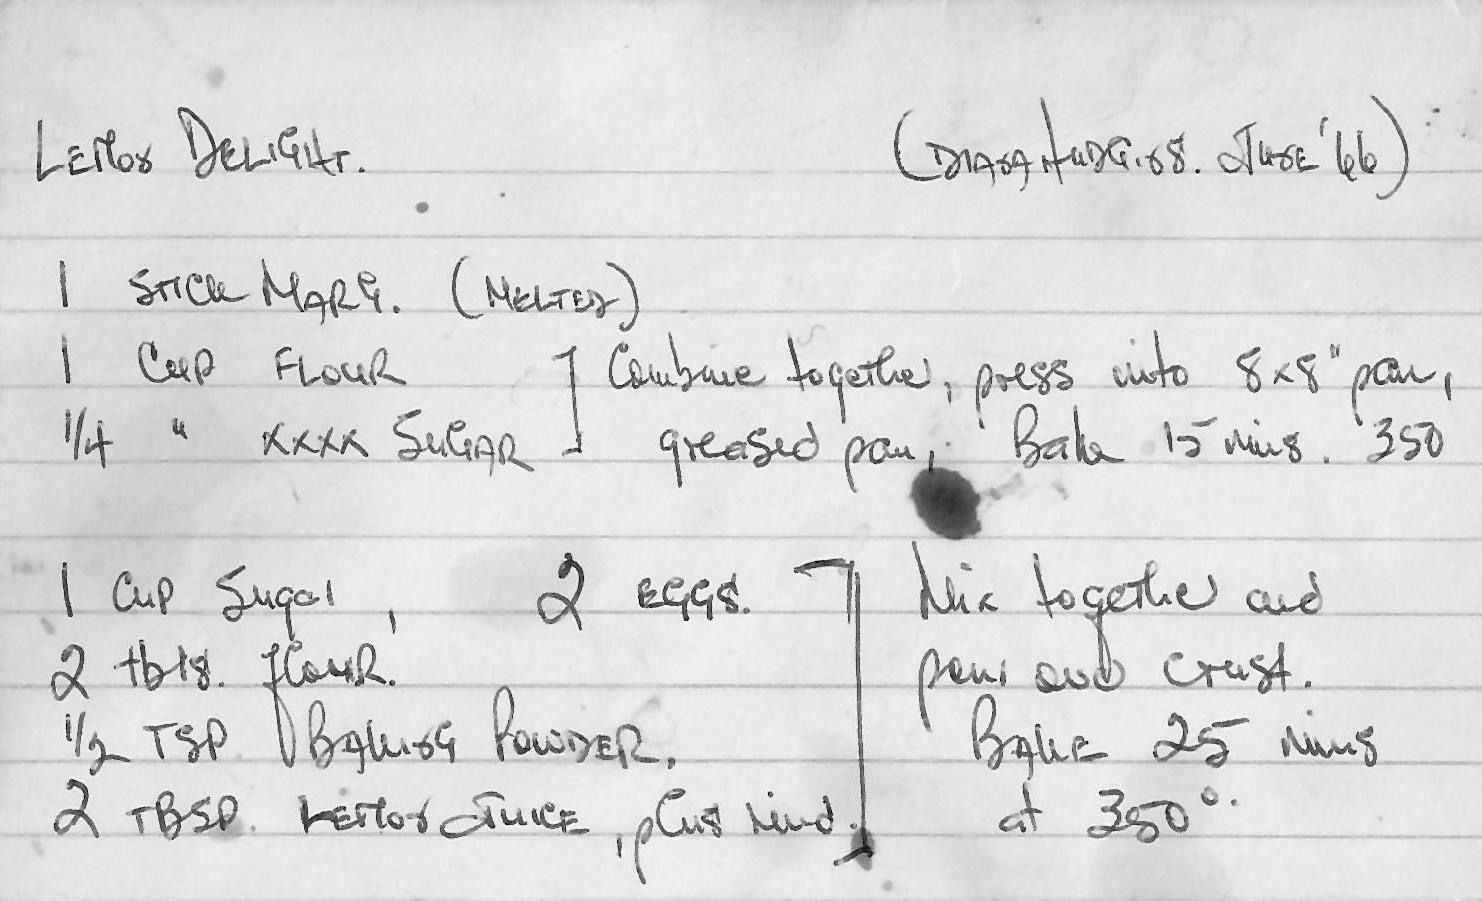 LEMON DELIGHT. (DIANA HUDGINS. JUNE '66)
1 STICK MARG. (MELTED)
1 CUP FLOUR ] Combine together, press into 8x8" pan,
1/4 " XXXX SUGAR ] greased pan, Bake 15 mins. 350
1 CUP Sugar, 2 EGGS. ] Mix together and
2 tbls. flouR. pour over crust.
1/2 TSP. BAKING POWDER. BAKE 25 mins
2 TBSP. LEMON JUICE, plus rind. at 350°.